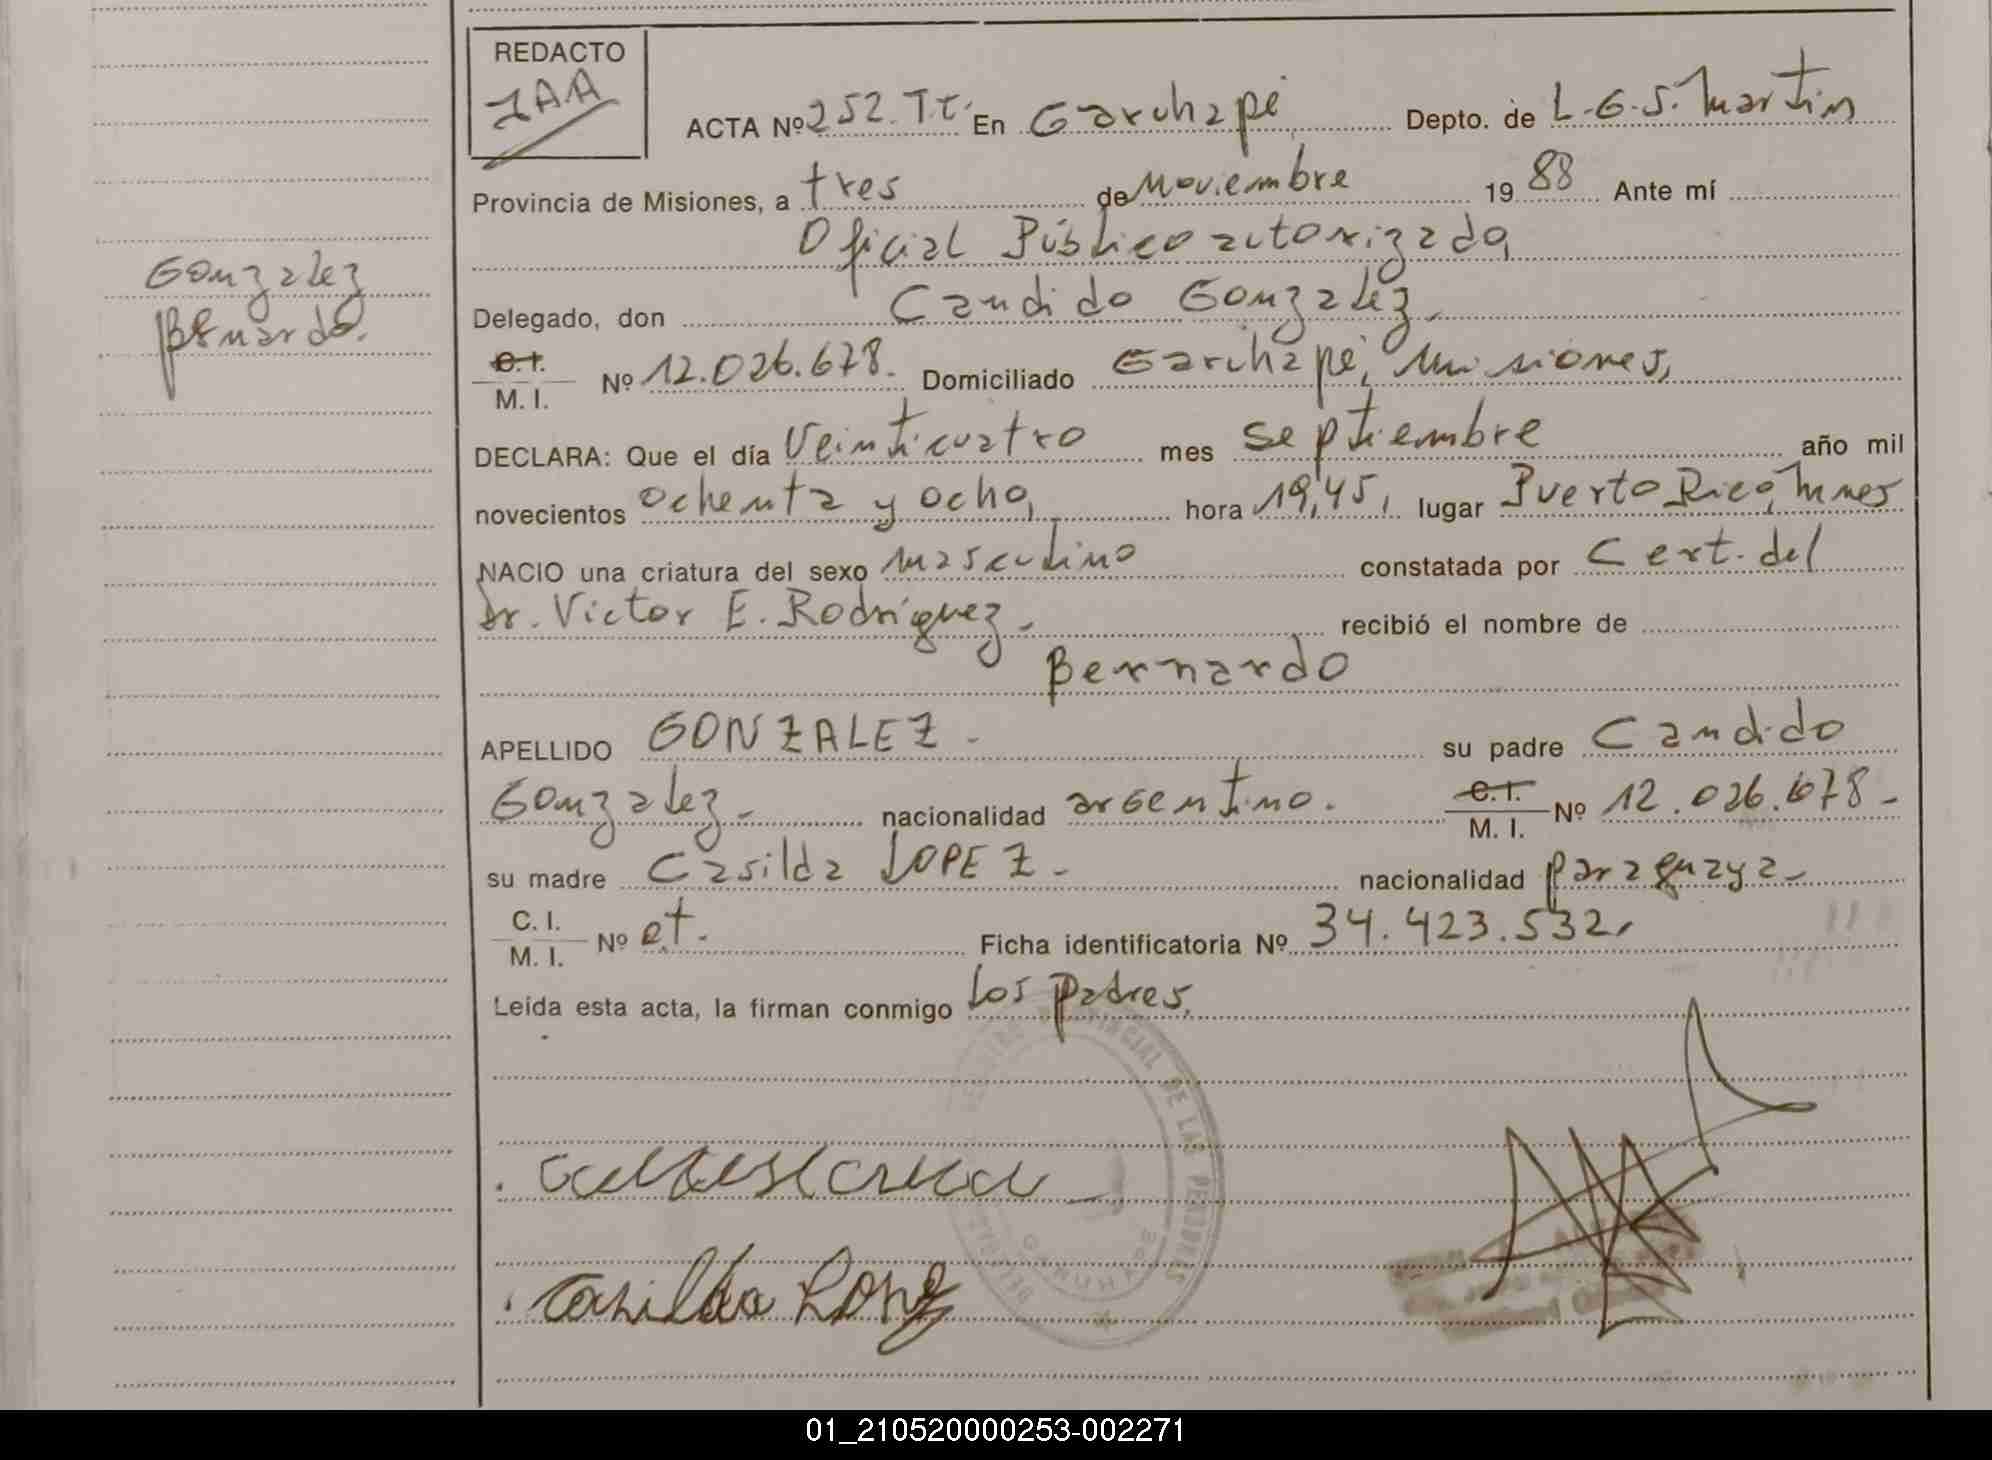 REDACTO
JAA
ACTA Nº 252. Tt. En Garuhapé, Depto. de L.G.S. Martin
Provincia de Misiones, a tres de Noviembre 19 88 Ante mí
Oficial Público autorizado,
Delegado, don Candido Gonzalez.
Gonzalez
Bernardo.
C.I.
M. I. Nº 12.026.678. Domiciliado Garuhapé, Misiones,
DECLARA: Que el día Veinticuatro mes septiembre año mil
novecientos ochenta y ocho, hora 19,45, lugar Puerto Rico, Mnes
NACIO una criatura del sexo masculino constatada por Cert. del
Dr. Victor E. Rodríguez. recibió el nombre de
Bernardo
APELLIDO GONZALEZ. su padre Candido
Gonzalez. nacionalidad argentino. C.I. M. I. Nº 12.026.678.
su madre Casilda LOPEZ. nacionalidad paraguaya
C. I.
M. I. Nº et. Ficha identificatoria Nº 34.423.532,
Leída esta acta, la firman conmigo los padres,
REGISTRO PROVINCIAL DE LAS PERSONAS
GARUHAPE
Casilda Lopez
01_210520000253-002271